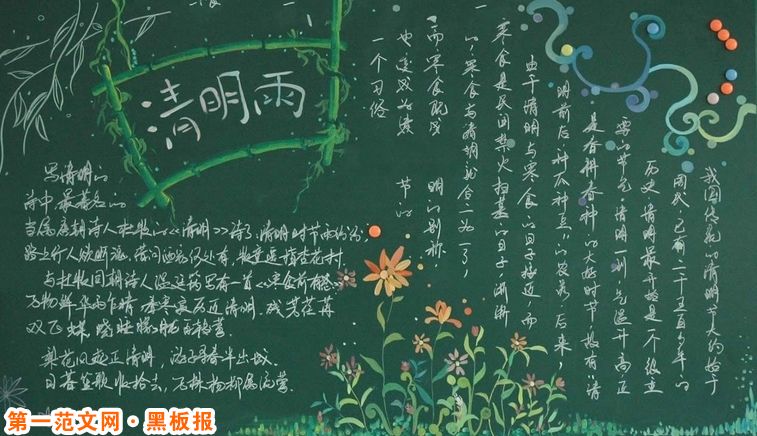 清明雨
我国传统的清明节大约始于
周代,已有二千五百多年的
历史,清明最开始是一个很重
要的节气,清明一到,气温升高,正
是春耕春种的大好时节,故有“清
明前后,种瓜种豆”的农谚。后来,
由于清明与寒食的日子接近,而
寒食是民间禁火扫墓的日子,渐渐
的,寒食与清明就合二为一了,
而寒食既成 明的别称,
也变成为清 节的
一个习俗
写清明的
诗中最著名的
当属唐朝诗人杜牧的《清明》诗了,清明时节雨纷纷,
路上行人欲断魂。借问酒家何处有,牧童遥指杏花村。
与杜牧同朝诗人温庭筠里有一首《寒食前有怀》
万物鲜华雨乍晴,春寒寂历近清明。残芳荏苒
双飞蝶,晓睡朦胧百转莺
梨花风起正清明,游子寻春半出城。
日暮笙歌收拾去,万株杨柳属流莺。
第一范文网·黑板报